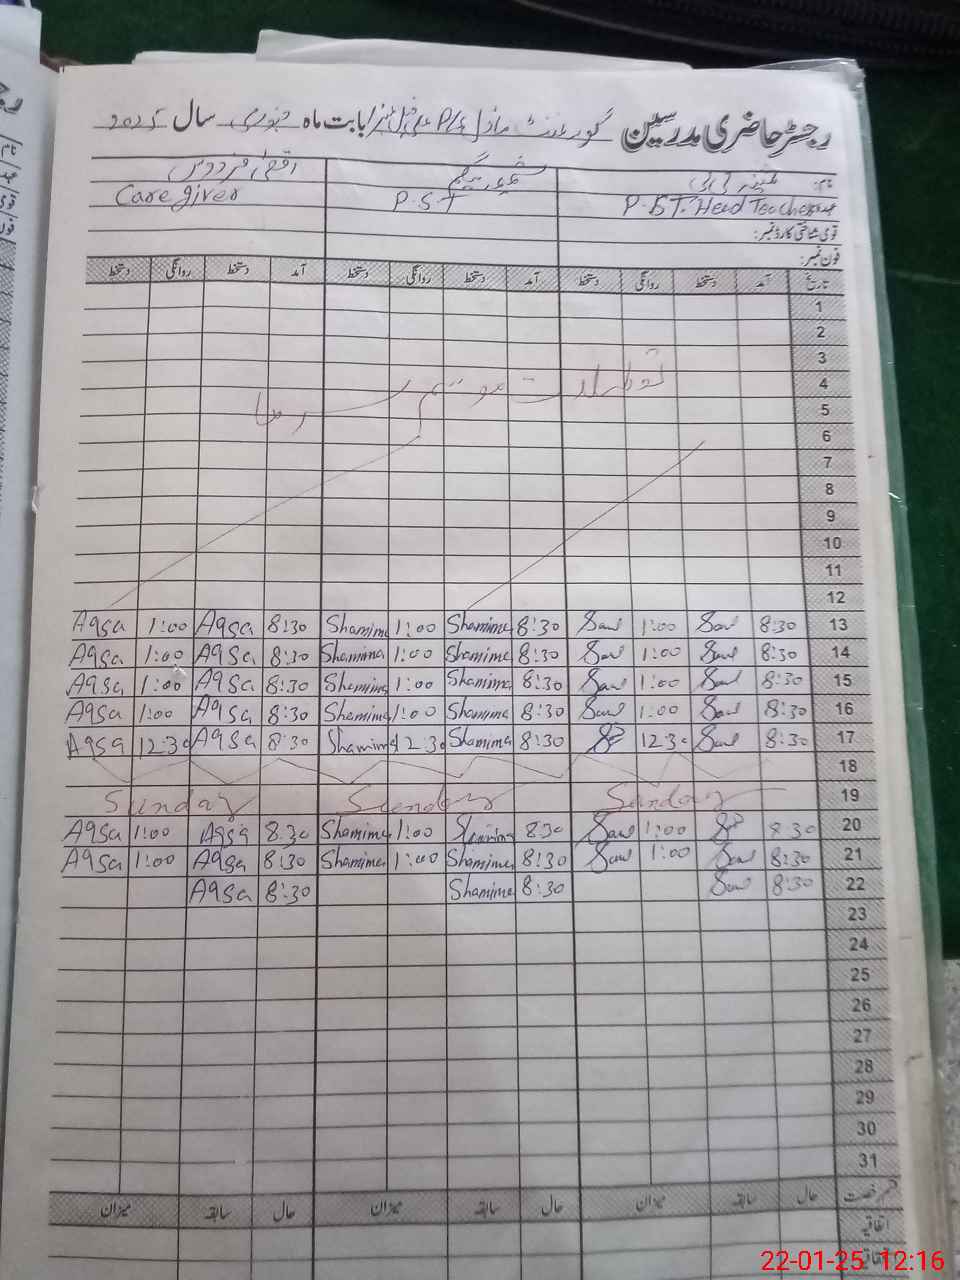 رجسٹر حاضری مدرسین گورنمنٹ ماڈل P/S بابت ماہ جنوری سال 2025
نام: شمیم بیگم اقصیٰ فردوس
عہدہ P.S.T. Head Teacher P.S.T Care giver
قومی شناختی کارڈ نمبر:
فون نمبر:
تاریخ آمد دستخط روانگی دستخط آمد دستخط روانگی دستخط آمد دستخط روانگی دستخط
1
2
3
4
تعطیلات موسم سرما
5
6
7
8
9
10
11
12
13 8:30 1:00 8:30 Shamima 1:00 Shamima 8:30 Aqsa 1:00 Aqsa
14 8:30 1:00 8:30 Shamima 1:00 Shamima 8:30 Aqsa 1:00 Aqsa
15 8:30 1:00 8:30 Shamima 1:00 Shamima 8:30 Aqsa 1:00 Aqsa
16 8:30 1:00 8:30 Shamima 1:00 Shamima 8:30 Aqsa 1:00 Aqsa
17 8:30 12:30 8:30 Shamima 12:30 Shamima 8:30 Aqsa 12:30 Aqsa
18
19 Sunday Sunday Sunday
20 8:30 1:00 8:30 Shamima 1:00 Shamima 8:30 Aqsa 1:00 Aqsa
21 8:30 1:00 8:30 Shamima 1:00 Shamima 8:30 Aqsa 1:00 Aqsa
22 8:30 8:30 Shamima 8:30 Aqsa
23
24
25
26
27
28
29
30
31
قسم رخصت حال سابقہ میزان حال سابقہ میزان حال سابقہ میزان
اتفاقیہ
22-01-25 12:16